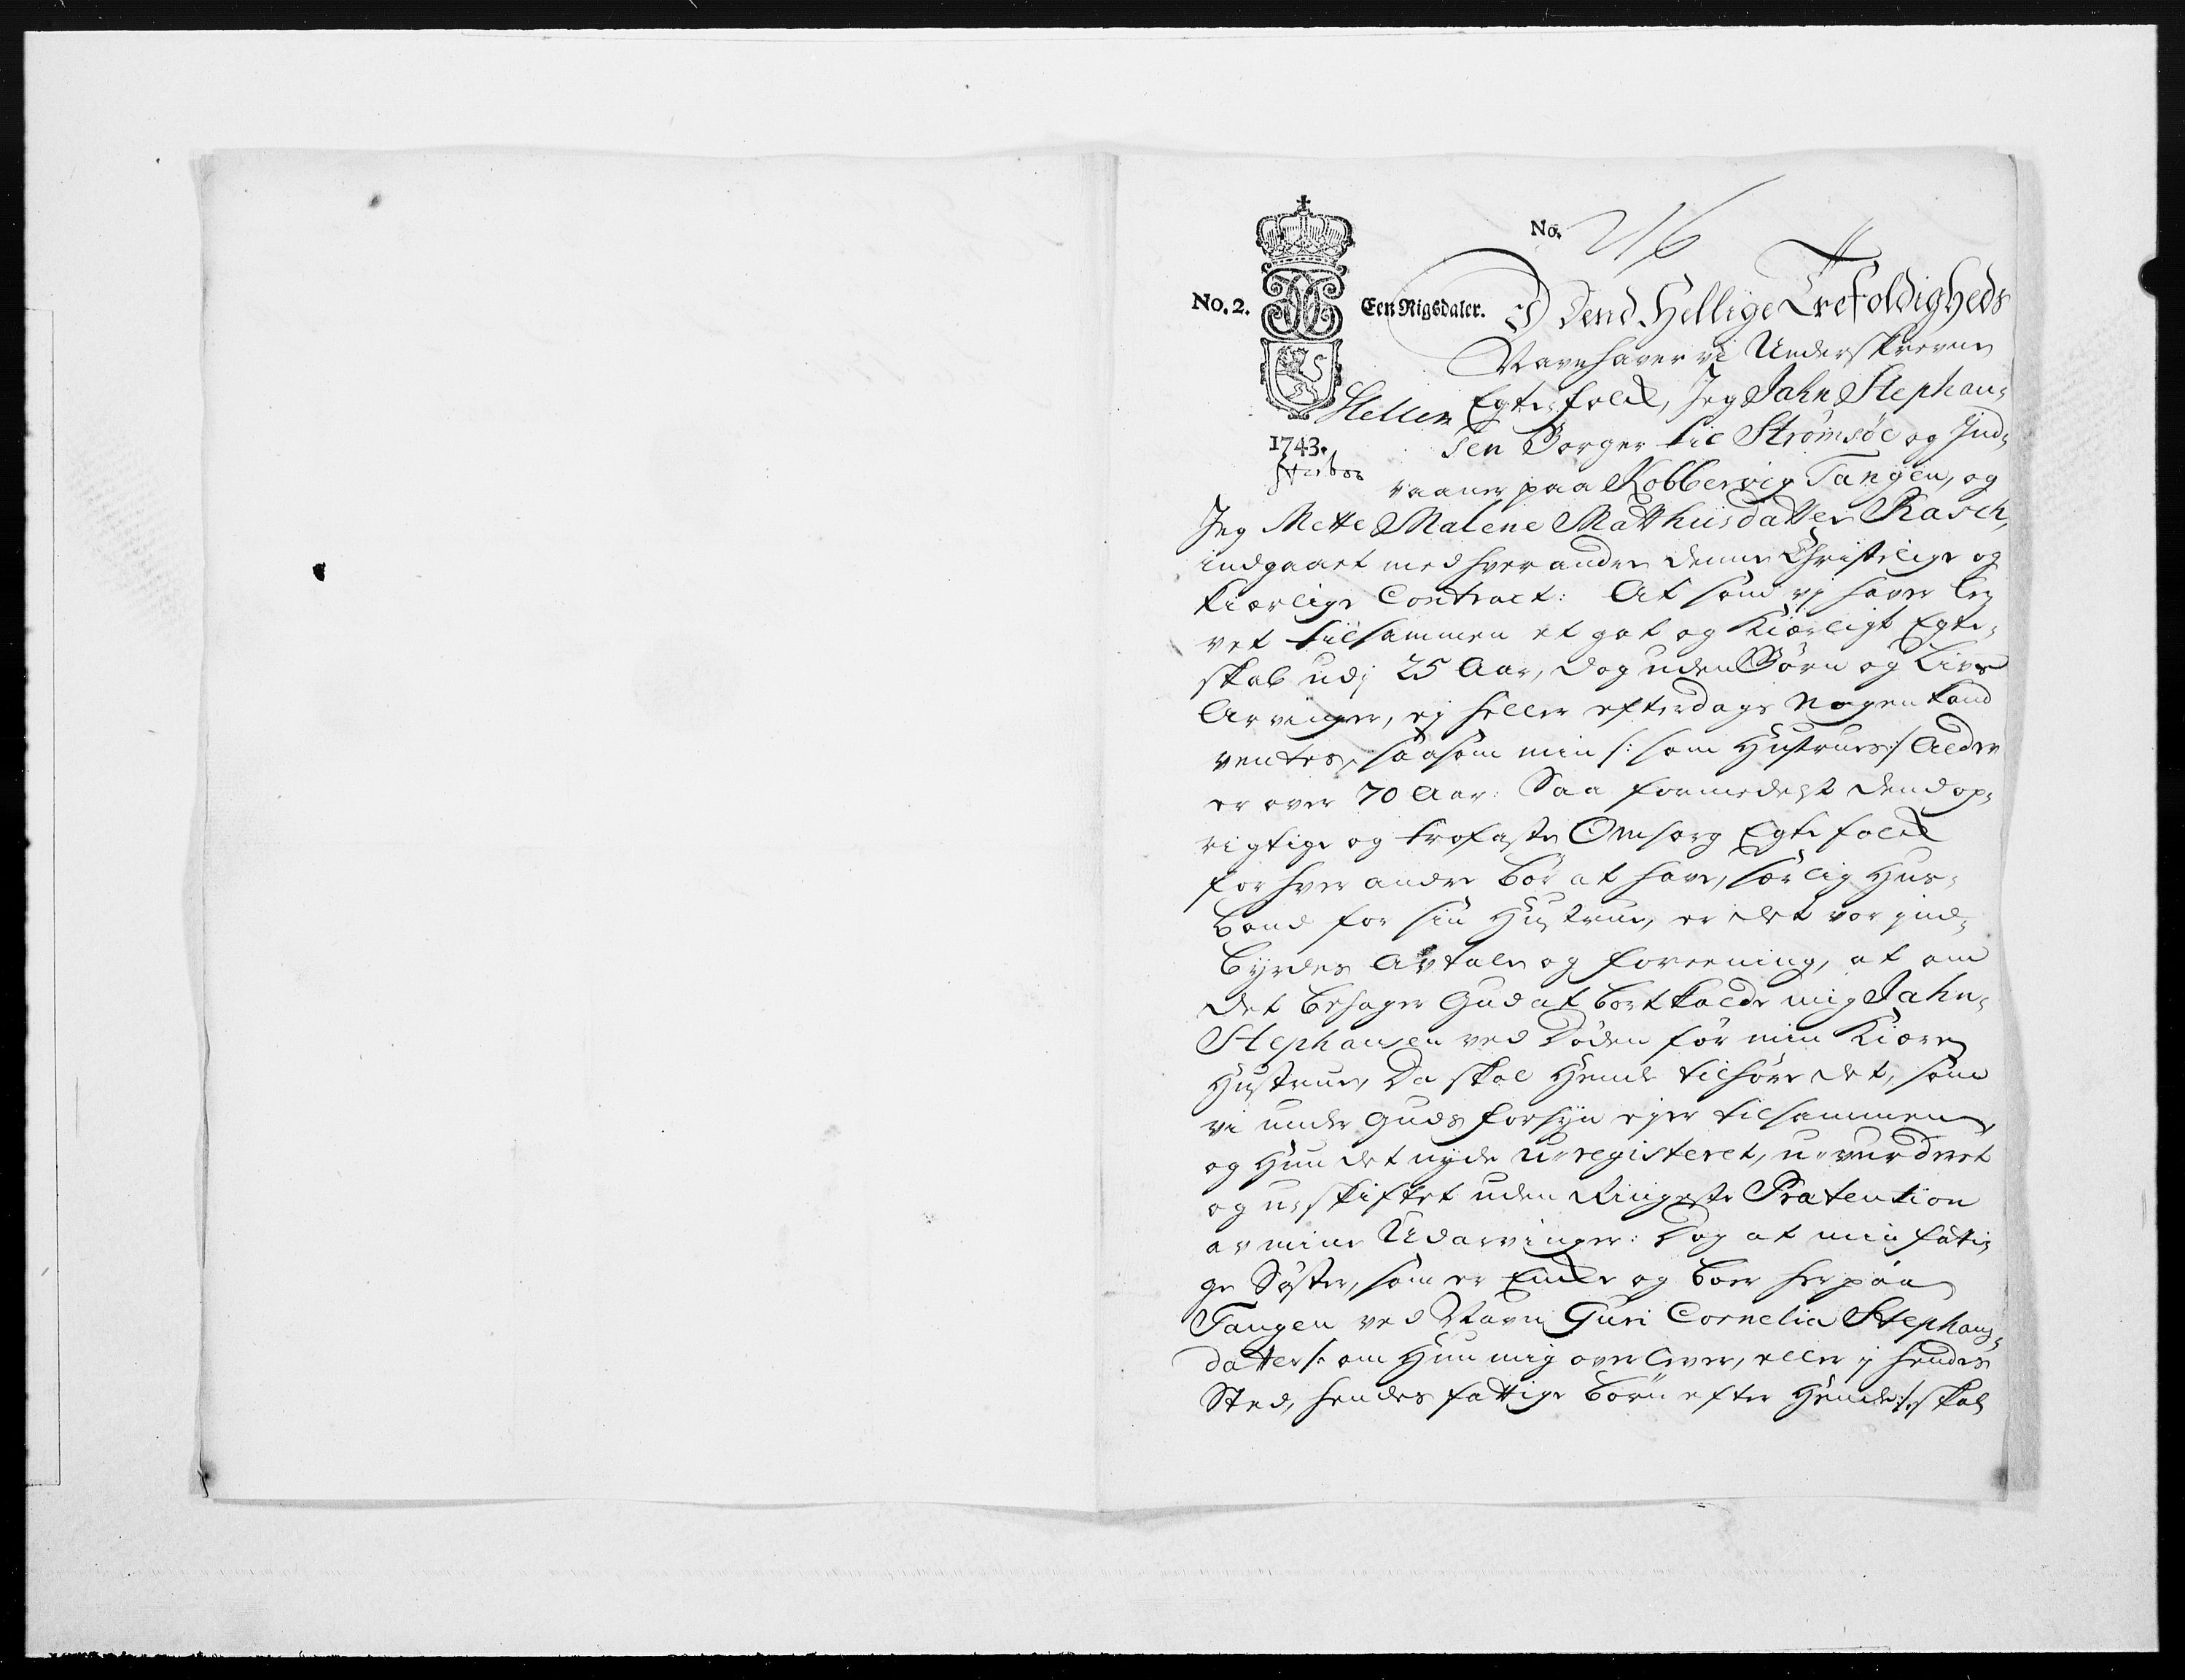 No. 216
No. 2. Een Rigsdaler. I Dend Hellige Trefoldigheds
Navn haver vi Underskrevne
Egte-folck, Jeg Jahn Stephan-
1743. sen Borger til Strømsøe og Ind-
vaaner paa Kobbervig Tangen, og
Jeg Mette Malene Matthiisdatter Rasch,
indgaaet med hver andre denne Christelige og
kiærlige Contract: At som vj haver le-
vet tilsammen et got og Kiærligt Egte-
skab udj 25 Aar, dog uden Børn og Livs
Arvinger, ej heller efterdags nogen kand
ventes, saasom min /: som Hustrues :/ Alder
er over 70 Aar: Saa formedelst dend op-
rigtige og trofaste Omsorg Egtefolck
for hver andre bør at have, særlig Hus-
bond for sin Hustrue, er det vor ind-
byrdes Avtale og foreening, at om
det behager Gud at bortkalde mig Jahn
Stephansen ved Døden før min Kiære
Hustrue, Da skal Hende tilhøre det, som
vi under Guds forsyn ejer tilsammen,
og Hun det nyde u-registeret, u-vurderet
og u-skiftet uden Ringeste Prætention
av mine Udarvinger: Dog at min fatti-
ge Søster, som er Encke og boer her paa
Tangen ved Navn Guri Cornelia Stephans-
datter /: om Hun mig overlever, eller j hendes
Sted, hendes fattige børn efter Hende :/ skal